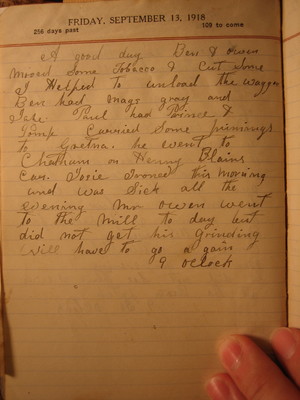 FRIDAY, SEPTEMBER 13, 1918
256 days past 109 to come
A good day. Ben & Owen
Moved Some Tobacco & Cut Some
I Helped to unload the waggon
Ben had Mags gray and
Paul had Prince &
Carried Some
to Gretna. he went to
Chatham on Henny Blairs
Car. Josie this morning
and was Sick all the
evening Mr Owen went
to the Mill to day but
did not get his Grinding
will have to go a gain
9 oclock